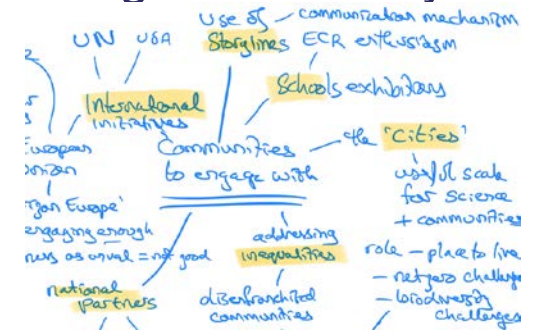 use of — communication mechanism
Storylines ECR enthusiasm
UN USA
Schools exhibitions
International
initiatives
European
Communities — the 'Cities'
to engage with
useful scale
for science
+ communities
Europe'
engaging enough
as usual = not good
addressing
inequalities
role — place to live
— net zero challenge
— biodiversity
challenges
national
partners
disenfranchised
communities